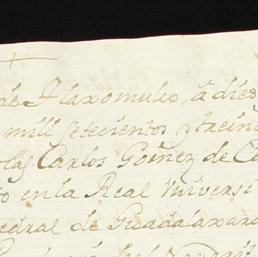 de Tlaxomulco, â diez
mill setecientos y trein
las Carlos Gomez de Ce
to en la Real Universi
edral de Guadalaxara